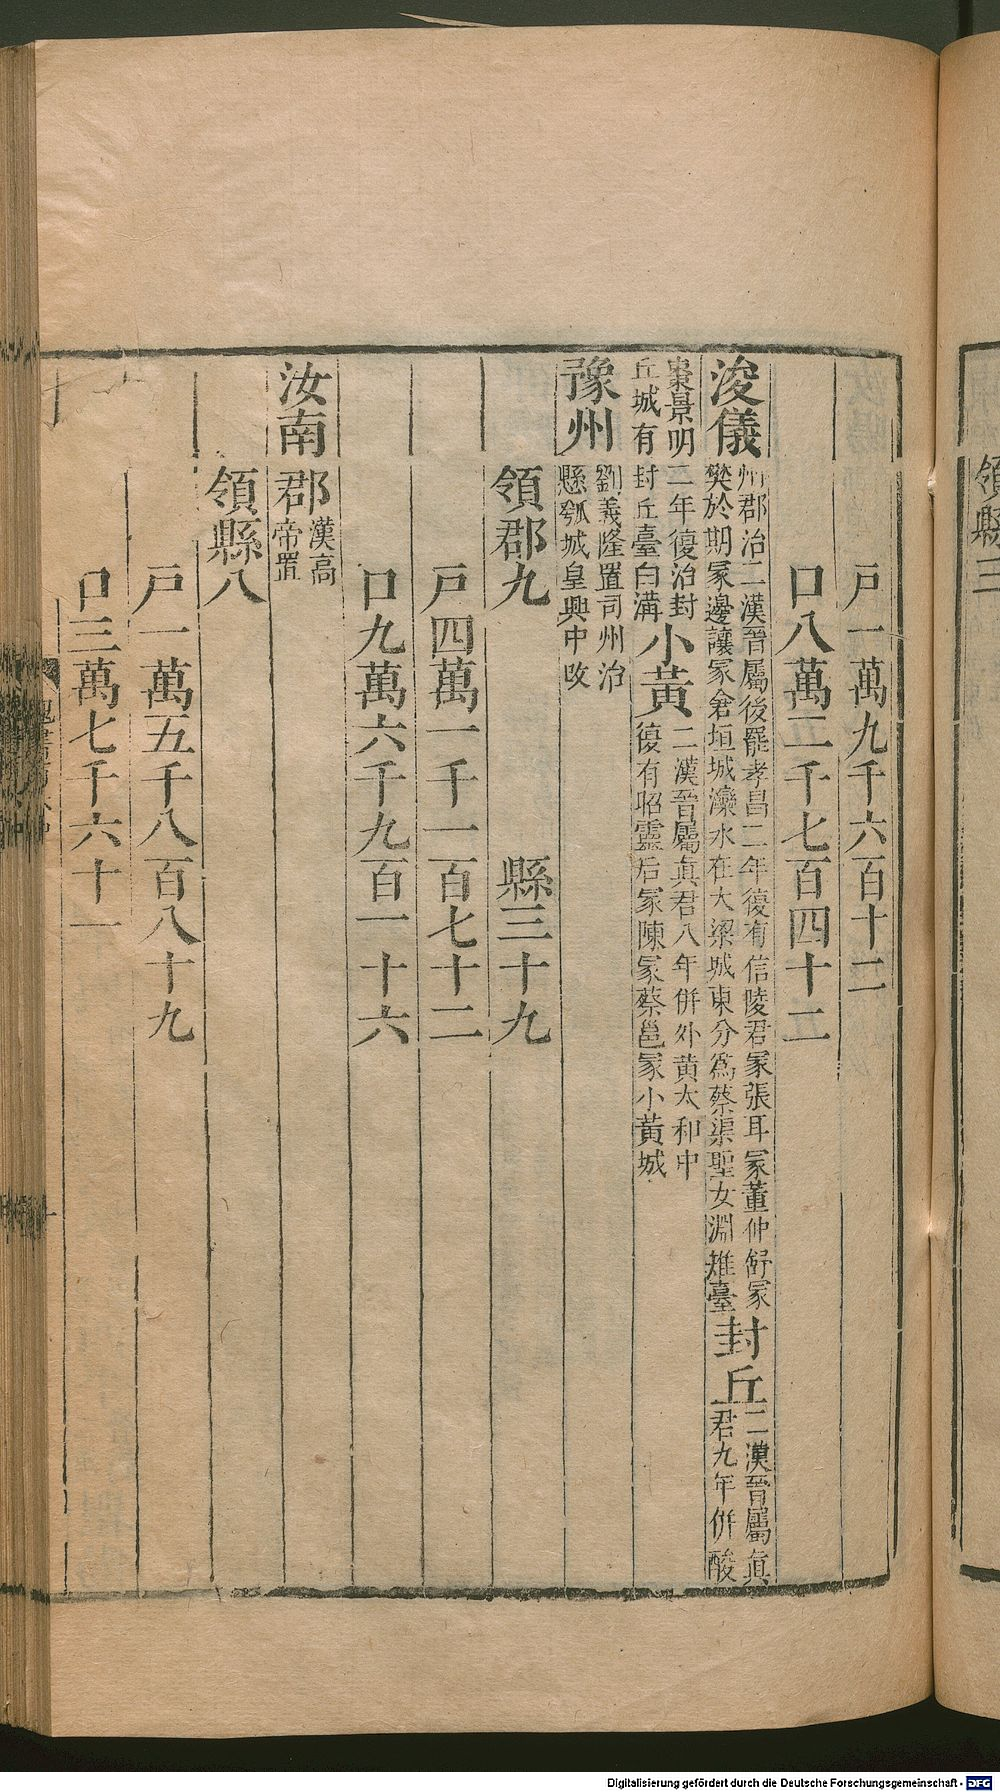 領縣三
戸一萬九千六百十二
口八萬二千七百四十二
浚儀州郡治二漢晉屬後罷孝昌二年復有信陵君冢張耳冢董仲舒冢樊於期冢邊讓冢倉垣城濼水在大梁城東分爲蔡渠聖女淵雉臺封丘二漢晉屬眞君九年併酸
棗景明二年復治封丘城有封丘臺白溝小黃二漢晉屬眞君八年併外黃太和中復有昭靈后冢陳冢蔡邕冢小黃城
豫州劉義隆置司州治懸瓠城皇興中改
領郡九　縣三十九
戸四萬一千一百七十二
口九萬六千九百一十六
汝南郡漢高帝置
領縣八
戸一萬五千八百八十九
口三萬七千六十一
Digitalisierung gefördert durch die Deutsche Forschungsgemeinschaft - DFG